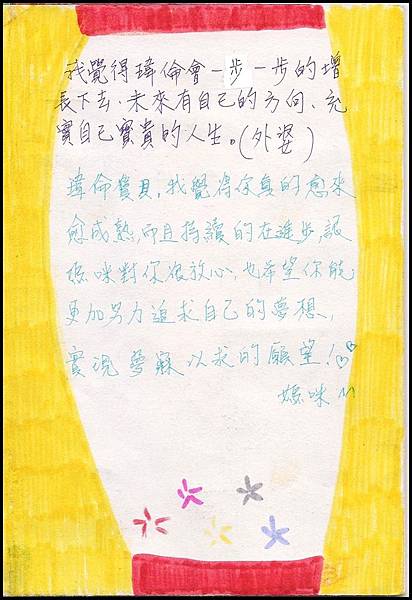 我覺得瑋倫會一步一步的增
長下去,未來有自己的方向、充
實自己寶貴的人生。(外婆)
瑋倫寶貝,我覺得你真的愈來
愈成熟,而且持續的在進步,讓
媽咪對你很放心,也希望你能
更加努力追求自己的夢想,
實現夢寐以求的願望!♡♡
媽咪